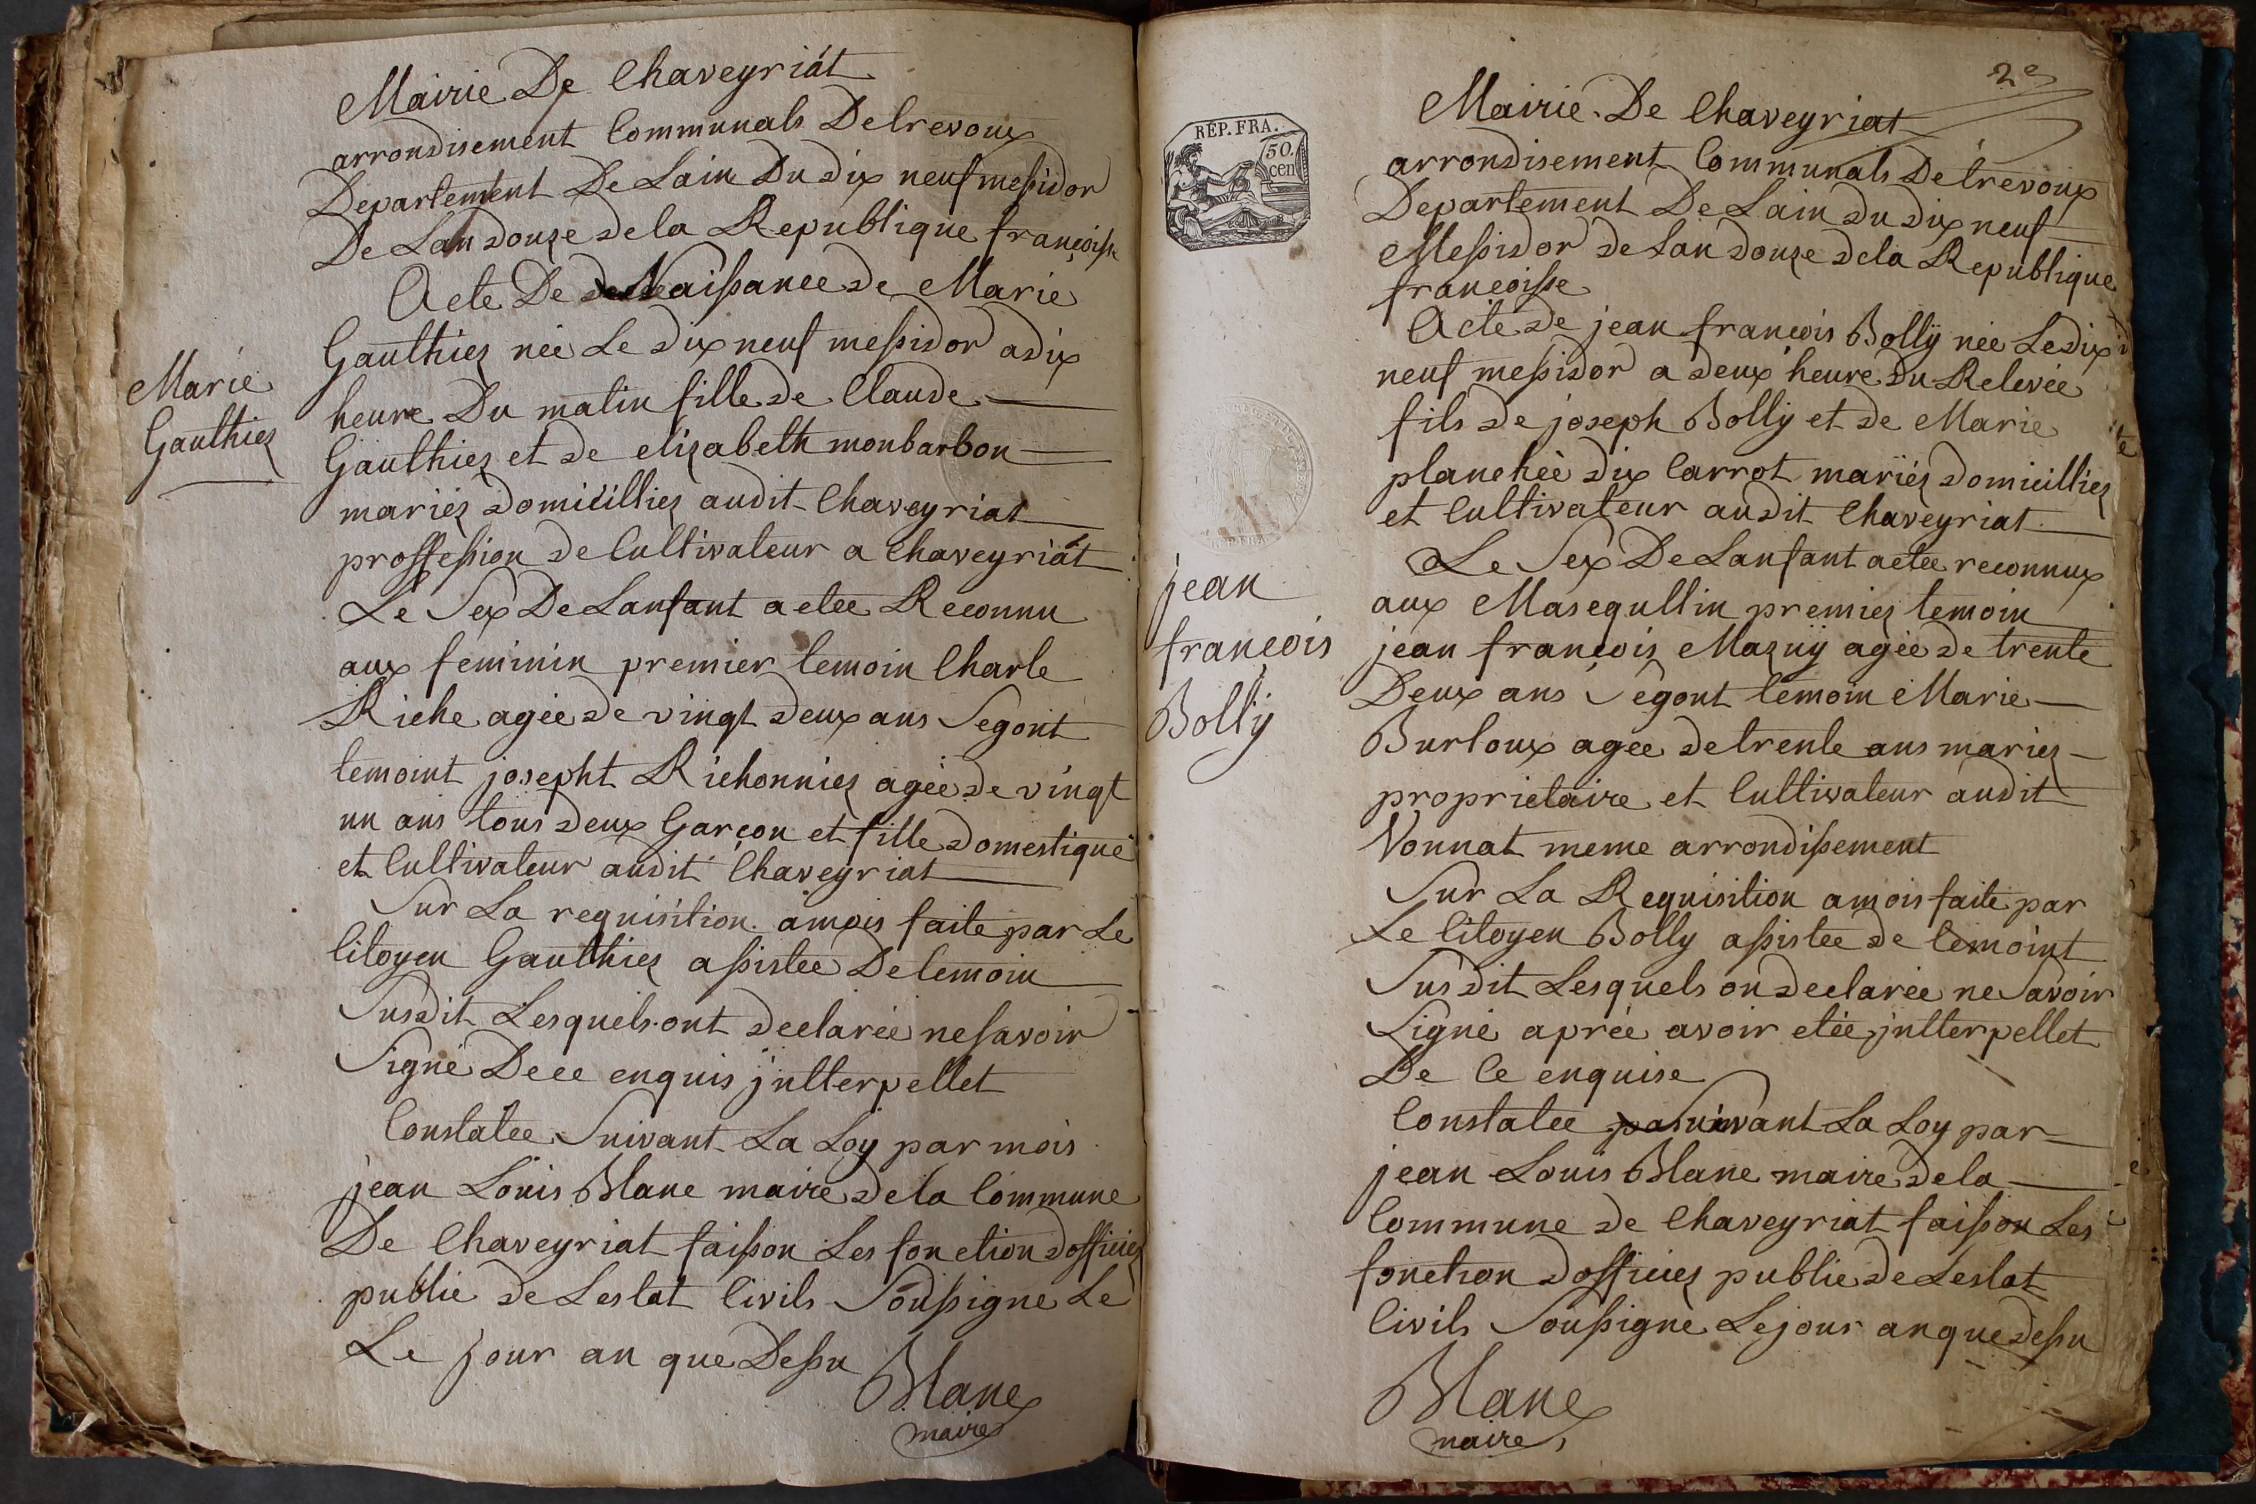 Mairie De Chaveyriat
arrondisement Communals Detrevoux
Departement De Lain Du dix neuf messidor
De Lan douze dela Republique françoisse
Acte De Naissance de Marie
Gauthiez née Le dix neuf messidor a dix
heure Du matin fille de Claude
Gauthiez et de elizabeth monbarbon
mariéz domicilliez audit Chaveyriat
proffession de Cultivateur a Chaveyriat
Le Sex De Lanfant a etee Reconnu
aux feminin premier temoin Charle
Riche agée de vingt deux ans Segont
temoint josepht Richonniez agée de vingt
un ans tous deux Garçon et fille domestique
et Cultivateur audit Chaveyriat
Sur La requisition a mois faite par Le
Citoyen Gauthiez assistee De temoin
Susdit Lesquels ont declarée ne savoir
Signé De ce enquis jntterpellet
Constatee Suivant La Loy par mois
jean Louis Blanc maire dela Commune
De Chaveyriat faisson Les fonction dofficiez
public de Lestat Civils Soussigne Le
Le jour an que Dessu
Blanc
maire
Marie
Gauthiez
2e
Mairie De Chaveyriat
arrondisement Communals Detrevoux
Departement De Lain du dix neuf
Messidor de Lan douze dela Republique
francoisse
Acte de jean francois Bolly née Le dix
neuf messidor a deux heure Du Relevée
fils de joseph Bolly et de Marie
planchée dix Carrot mariéz domicilliez
et Cultivateur audit Chaveyriat
Le Sex De Lanfant a etee reconnux
aux Masequllin premiez temoin
jean françois Mazuy agée de trente
Deux ans Segont temoin Marie
Burtoux agee de trente ans mariez
proprietaire et Cultivateur audit
Vonnat meme arrondissement
Sur La Requisition a mois faite par
Le Citoyen Bolly assistee de temoint
Susdit Lesquels on declarée ne Savoir
Signé aprée avoir etée jntterpellet
De Ce enquise
Constatee Suivant La Loy par
jean Louis Blanc maire dela
Commune de Chaveyriat faisson Les
fonction dofficiez public de Lestat
Civils Soussigné Le jour an que dessu
Blanc
maire
REP. FRA.
50.
cen
jean
francois
Bolly